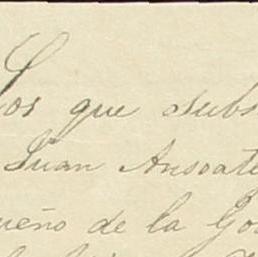 Los que subs
Juan Ansoate
ueño de la Go